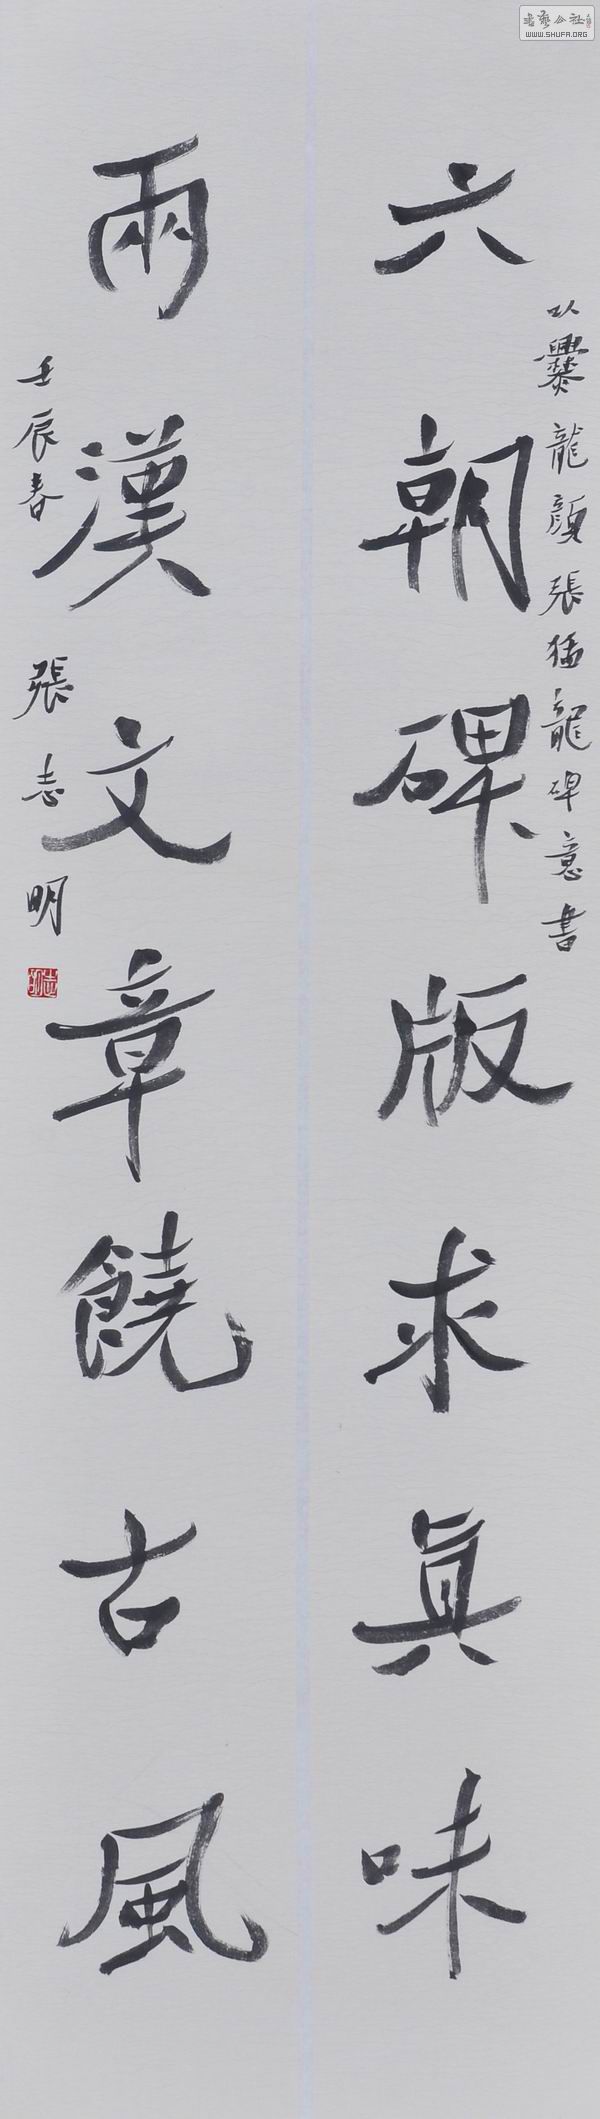 以爨龍顏張猛龍碑意書
六朝碑版求真味
兩漢文章饒古風
壬辰春
張志明
志明
WWW.SHUFA.ORG